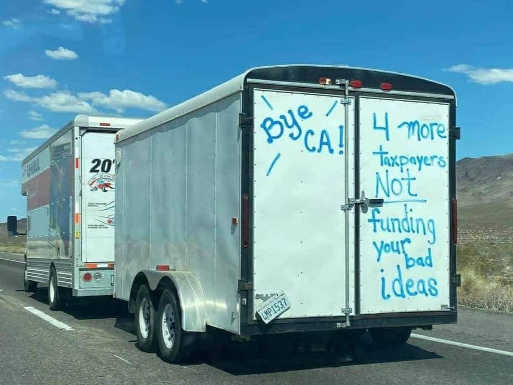 20'
Bye
CA!
4 more
taxpayers
Not
funding
your
bad
ideas